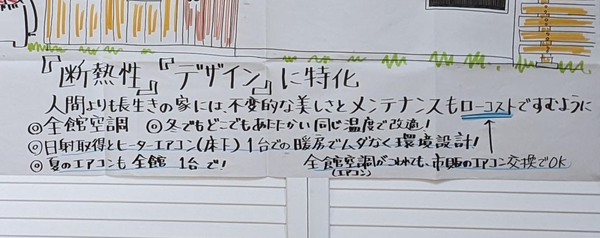 『断熱性』『デザイン』に特化
人間よりも長生きの家には、不変的な美しさとメンテナンスもローコストですむように
◎全館空調 ◎冬でもどこでもあたたかい同じ温度で改適！
◎日射取得とヒーターエアコン(床下)1台での暖房でムダなく環境設計！
◎夏のエアコンも全館1台で！
全館空調がつわれても、市販のエアコン交換でOK
(エアコン)